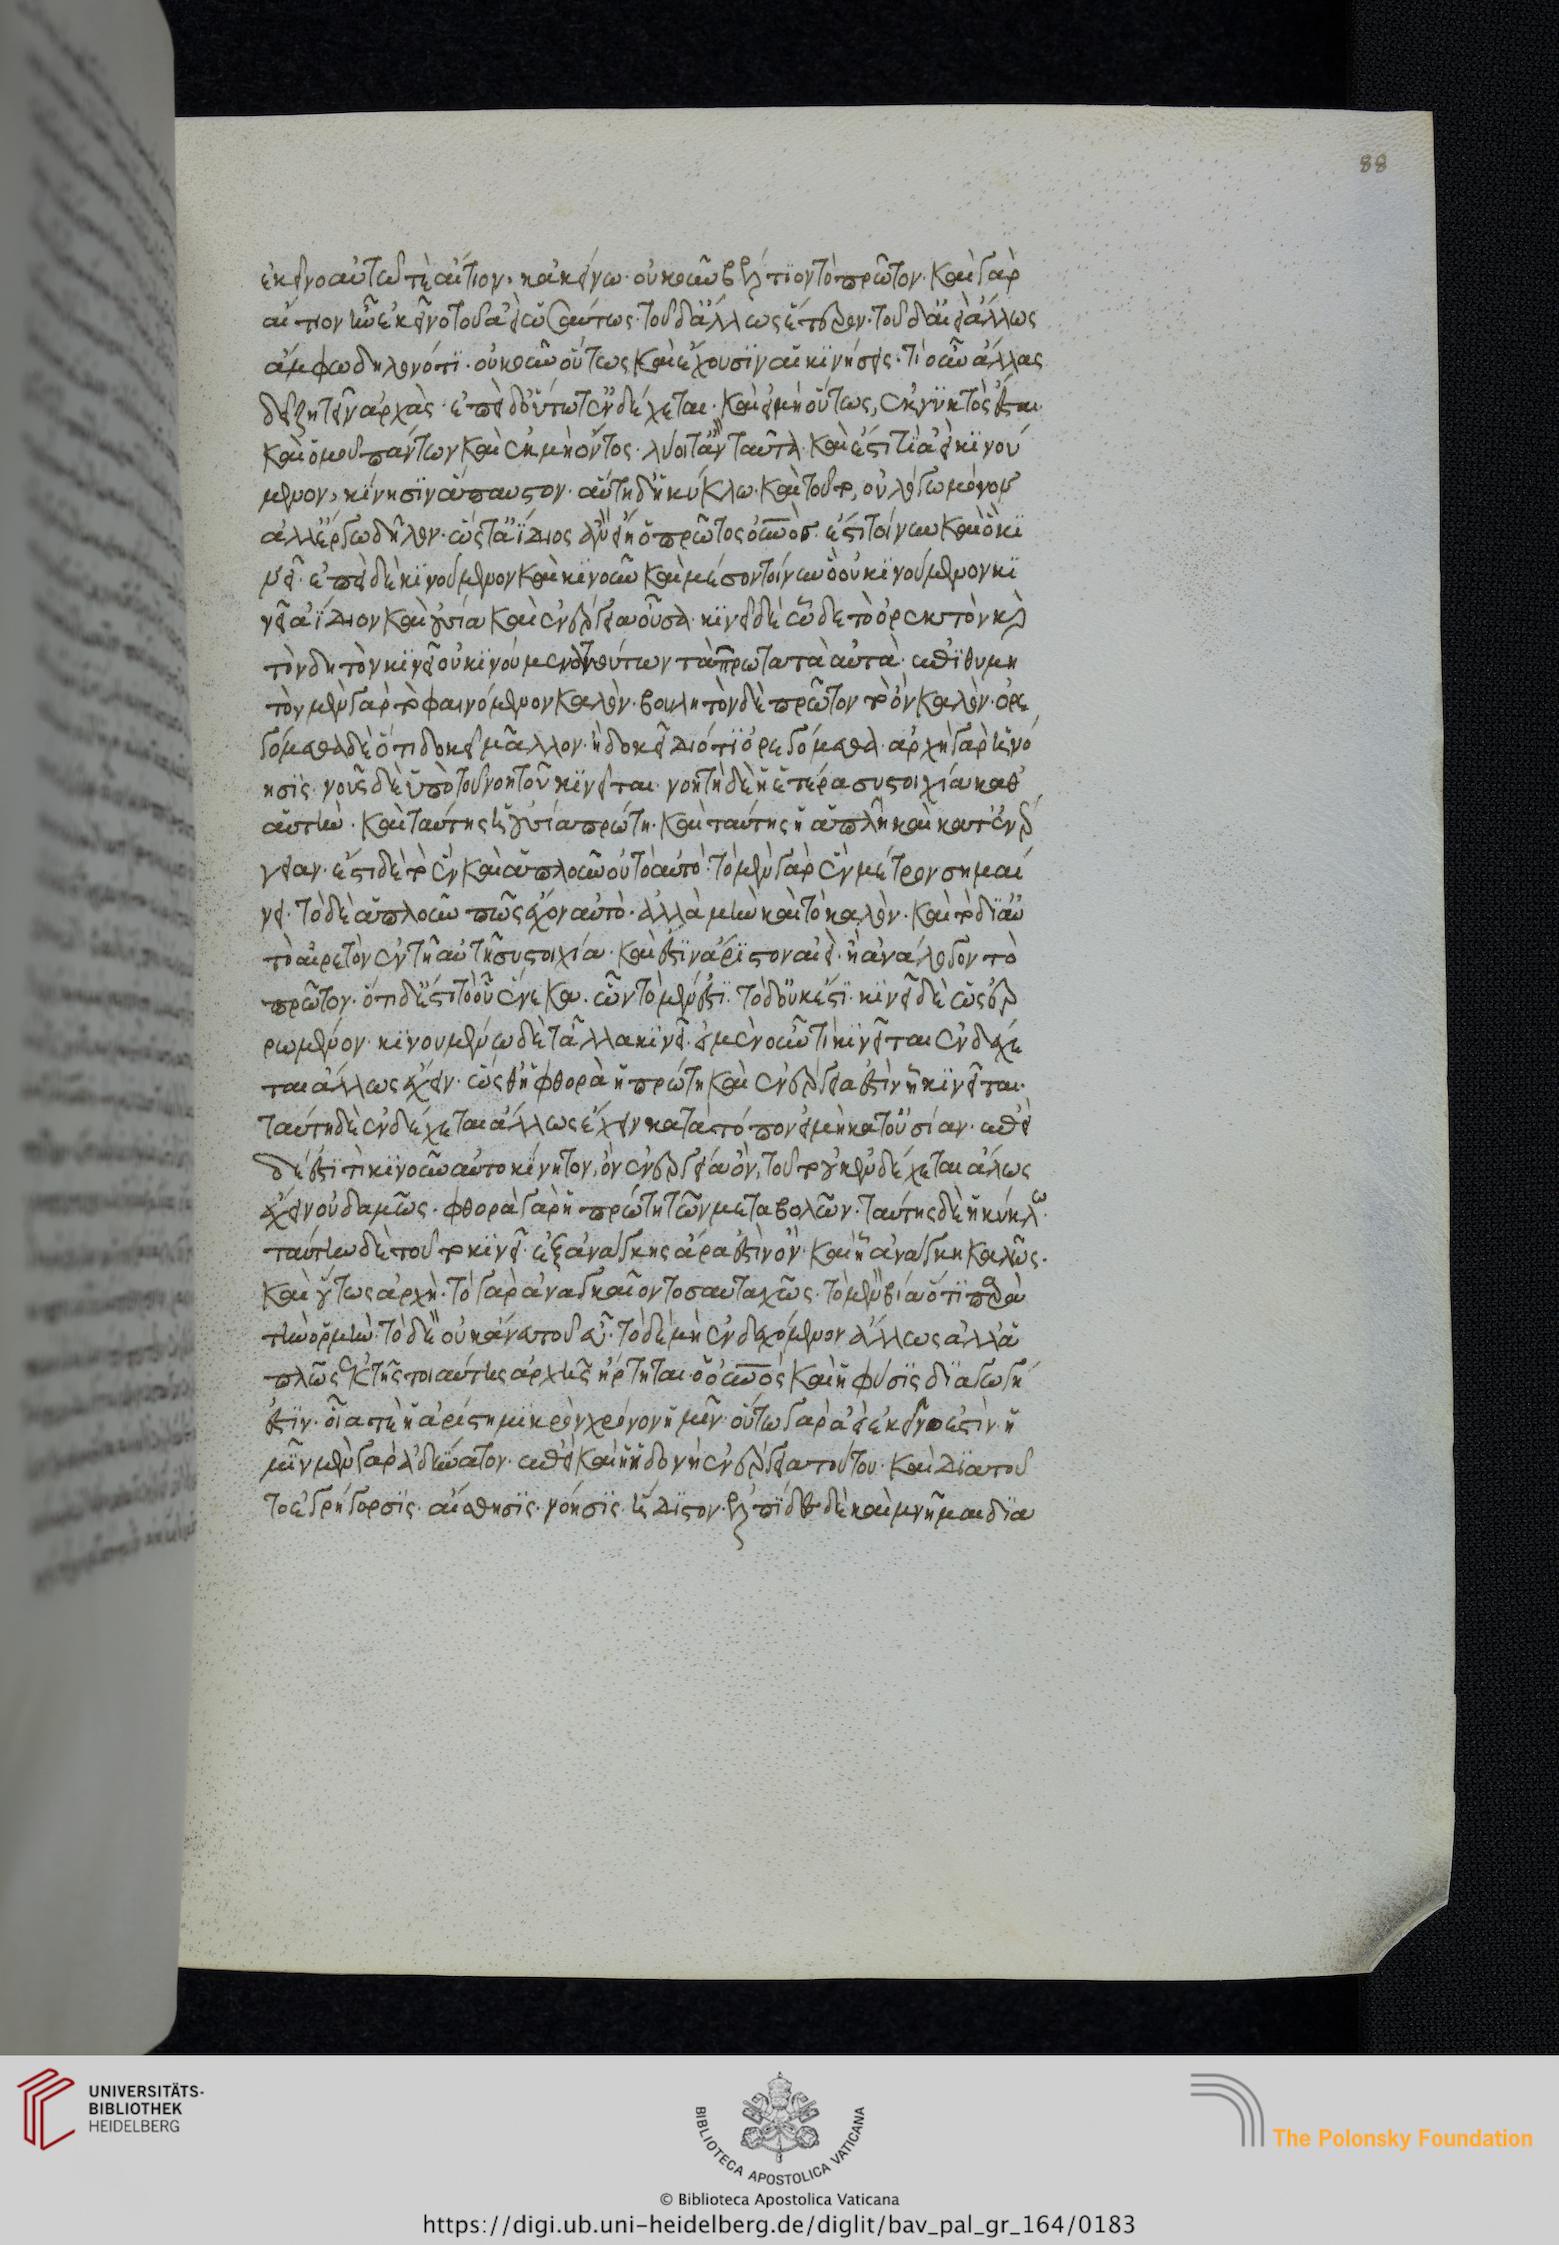 ἐκεῖνο αὐτῶ τὲ αἴτιον, κἀκείνω· οὐκοῦν βέλτιον τὸ πρῶτον· καὶ γὰρ
αἴτιον ἦν ἐκεῖνο τοῦ ἀεὶ ὡσαύτως· τοῦ δ' ἄλλως ἕτερον· τοῦ δ' ἀεὶ ἄλλως
ἄμφω δηλονότι· οὐκοῦν οὕτως καὶ ἔχουσιν αἱ κινήσεις· τί οὖν ἄλλας
δεῖ ζητεῖν ἀρχὰς· ἐπεὶ δ' οὕτω τ' ἐνδέχεται· καὶ εἰ μὴ οὕτως, ἐκ νυκτὸς ἔσται
καὶ ὁμοῦ πάντων καὶ ἐκ μὴ ὄντος· λύοιτ' ἂν ταῦτα· καὶ ἔστι τι ἀεὶ κινού
μενον, κίνησιν ἄπαυστον· αὕτη δ' ἡ κύκλω· καὶ τοῦτο, οὐ λόγω μόνον
ἀλλ' ἔργω δῆλον· ὥστ' ἀΐδιος ἂν εἴη ὁ πρῶτος οὐνος· ἔστι τοίνυν καὶ ὃ κι
νεῖ· ἐπεὶ δὲ κινούμενον καὶ κινοῦν καὶ μέσον τοίνυν ὃ οὐ κινούμενον κι
νεῖ ἀΐδιον καὶ οὐσία καὶ ἐνέργεια οὖσα· κινεῖ δὲ ὧδε τὸ ὀρεκτὸν καὶ
τὸν δη τὸν κινεῖ οὐ κινούμενον τούτων τὰ πρῶτα τὰ αὐτὰ· ἐπιθυμη
τὸν μὲν γὰρ τὸ φαινόμενον καλὸν· βουλητὸν δὲ πρῶτον τὸ ὂν καλὸν· ὀρε
γόμεθα δὲ ὅτι δοκεῖ μᾶλλον· ἢ δοκεῖ διότι ὀρεγόμεθα· ἀρχὴ γὰρ ἡ νό
ησις· νοῦς δὲ ὑπὸ τοῦ νοητοῦ κινεῖται· νοητὴ δὲ ἡ ἑτέρα συστοιχία καθ'
αὑτὴν· καὶ ταύτης ἡ οὐσία πρώτη· καὶ ταύτης ἡ ἁπλῆ καὶ κατ' ἐνέρ
γειαν· ἔστι δὲ τὸ ἓν καὶ ἁπλοῦν οὐ τὸ αὐτό· τὸ μὲν γὰρ ἓν μέτρον σημαί
νει· τὸ δὲ ἁπλοῦν πῶς ἔχον αὐτὸ· ἀλλὰ μὴν καὶ τὸ καλὸν· καὶ τὸ δι' αὑ
τὸ αἱρετὸν ἐν τῆ αὐτῆ συστοιχία· καὶ ἔστιν ἄριστον αἰεὶ· ἢ ἀνάλογον τὸ
πρῶτον· ὅτι δ' ἔστι τὸ οὗ ἕνεκα· ὧν τὸ μὲν ἔστι· τὸ δ' οὐκ ἔστι· κινεῖ δὲ ὡς ἐρ
ρωμένον· κινουμένω δὲ τἆλλα κινεῖ· εἰ μὲν οὖν τὶ κινεῖται ἐνδέχε
ται ἄλλως ἔχειν· ὥστ' εἰ ἡ φθορὰ ἡ πρώτη καὶ ἐνέργεια ἐστὶν ἧ κινεῖται·
ταύτη δὲ ἐνδέχεται ἄλλως ἔχειν κατὰ τόπον εἰ μὴ κατ' οὐσίαν· ἐπεὶ
δέ ἐστι τὶ κινοῦν αὐτὸ κίνητον, ὂν ἐνεργεία ὂν, τοῦτο οὐκ ἐνδέχεται ἄλως
ἔχειν οὐδαμῶς· φθορὰ γὰρ ἡ πρώτη τῶν μεταβολῶν· ταύτης δὲ ἡ κύκλω·
ταύτην δὲ τοῦτο κινεῖ· ἐξ ἀνάγκης ἄρα ἐστὶν ὂν· καὶ ἧ ἀνάγκη καλῶς·
καὶ οὕτως ἀρχὴ· τὸ γὰρ ἀναγκαῖον τοσαυταχῶς· τὸ μὲν βία ὅτι παρὰ
τὴν ὁρμὴν· τὸ δὲ οὗ οὐκ ἄνευ τοῦ εὖ· τὸ δὲ μὴ ἐνδεχόμενον ἄλλως ἀλλ' ἁ
πλῶς ἐκ τῆς τοιαύτης ἀρχῆς ἤρτηται ὁ οὐνός καὶ ἡ φύσις διαγωγή
ἐστιν· οἵα τε ἡ ἀρίστη μικρὸν χρόνον ἡμῖν· οὕτω γὰρ ἀεὶ ἐκεῖνο ἐστὶν· ἡ
μῖν μὲν γὰρ ἀδύνατον· ἐπεὶ καὶ ἡ ἡδονὴ ἐνέργεια τούτου· καὶ διὰ τοῦ
το ἐγρήγορσις· αἴσθησις· νόησις· ἥδιστον· ἐλπίδες δὲ καὶ μνῆμαι διὰ
88
UNIVERSITÄTS-
BIBLIOTHEK
HEIDELBERG
BIBLIOTECA APOSTOLICA VATICANA
© Biblioteca Apostolica Vaticana
The Polonsky Foundation
https://digi.ub.uni-heidelberg.de/diglit/bav_pal_gr_164/0183